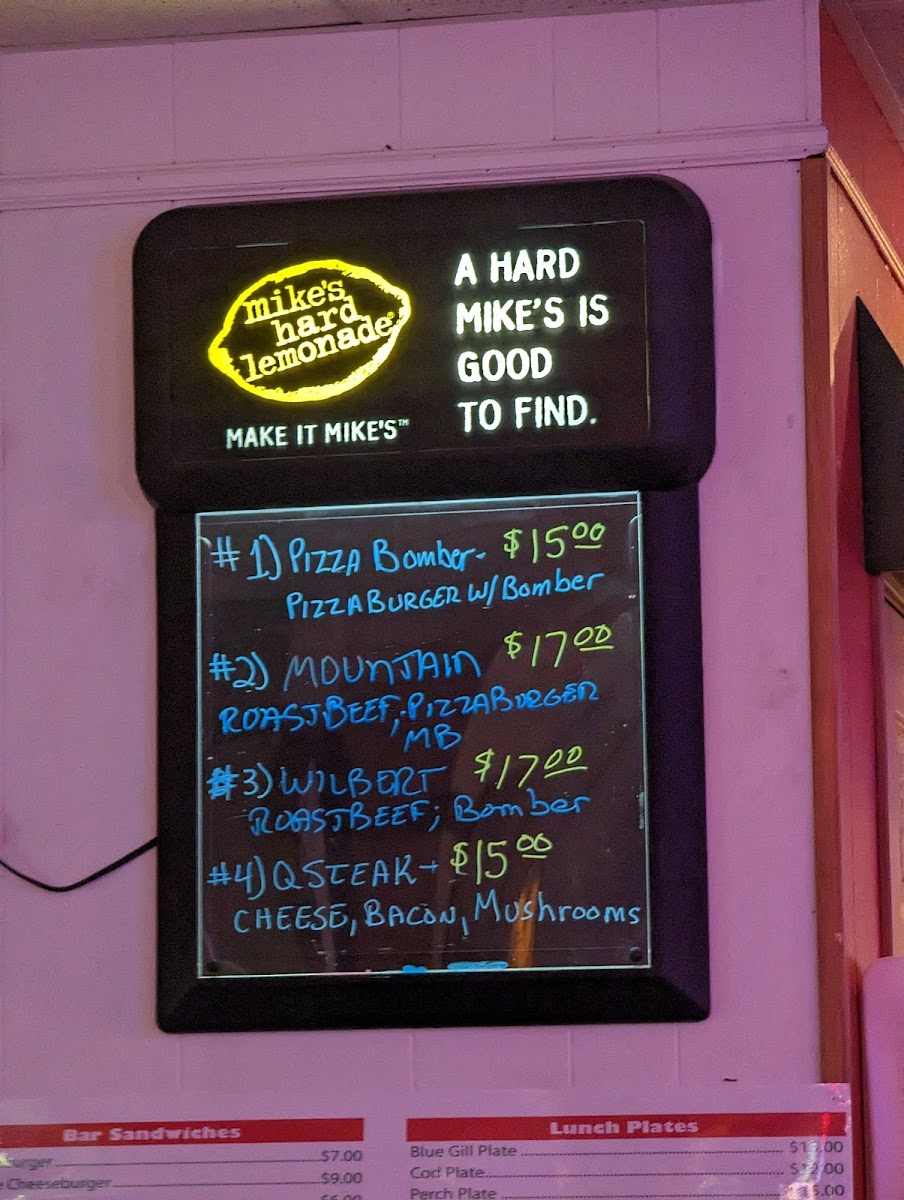 mike's
hard
lemonade®
MAKE IT MIKE'S™
A HARD
MIKE'S IS
GOOD
TO FIND.
#1) PIZZA Bomber- $15.00
PIZZABURGER W/ Bomber
#2) MOUNTAIN $17.00
ROASTBEEF, PIZZABURGER
MB
#3) WILBERT $17.00
ROASTBEEF; Bomber
#4) QSTEAK - $15.00
CHEESE, BACON, Mushrooms
Bar Sandwiches
$7.00
Cheeseburger $9.00
Lunch Plates
Blue Gill Plate
Cod Plate
Perch Plate